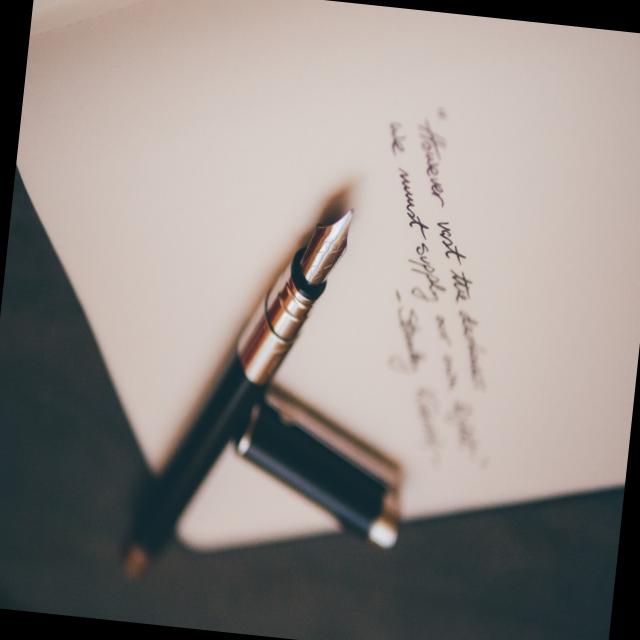 "However vast the darkness,
we must supply our own light."
- Stanley Kubrick